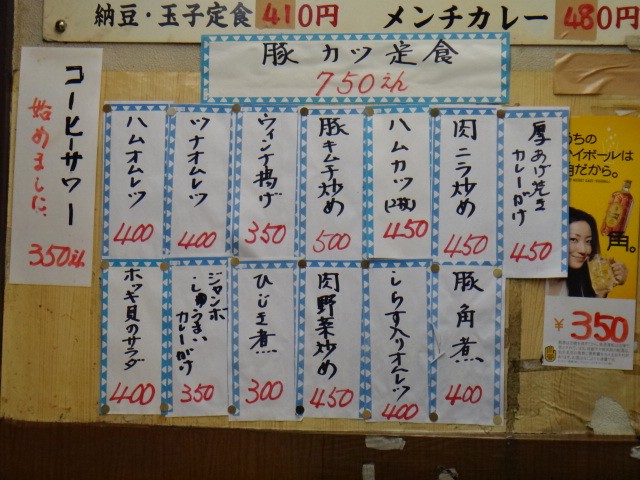 納豆・玉子定食 410円
メンチカレー 480円
豚カツ定食
750えん
コーヒーサワー
始めました。
350えん
厚あげ焼き
カレーがけ
450
肉ニラ炒め
450
ハムカツ(2枚)
450
豚キムチ炒め
500
ウィンナ揚げ
350
ツナオムレツ
400
ハムオムレツ
400
豚角煮
400
しらす入りオムレツ
400
肉野菜炒め
450
ひじき煮
300
ジャンボ
しゅうまい
カレーがけ
350
ホッキ貝のサラダ
400
うちの
ハイボールは
角だから。
角。
¥350